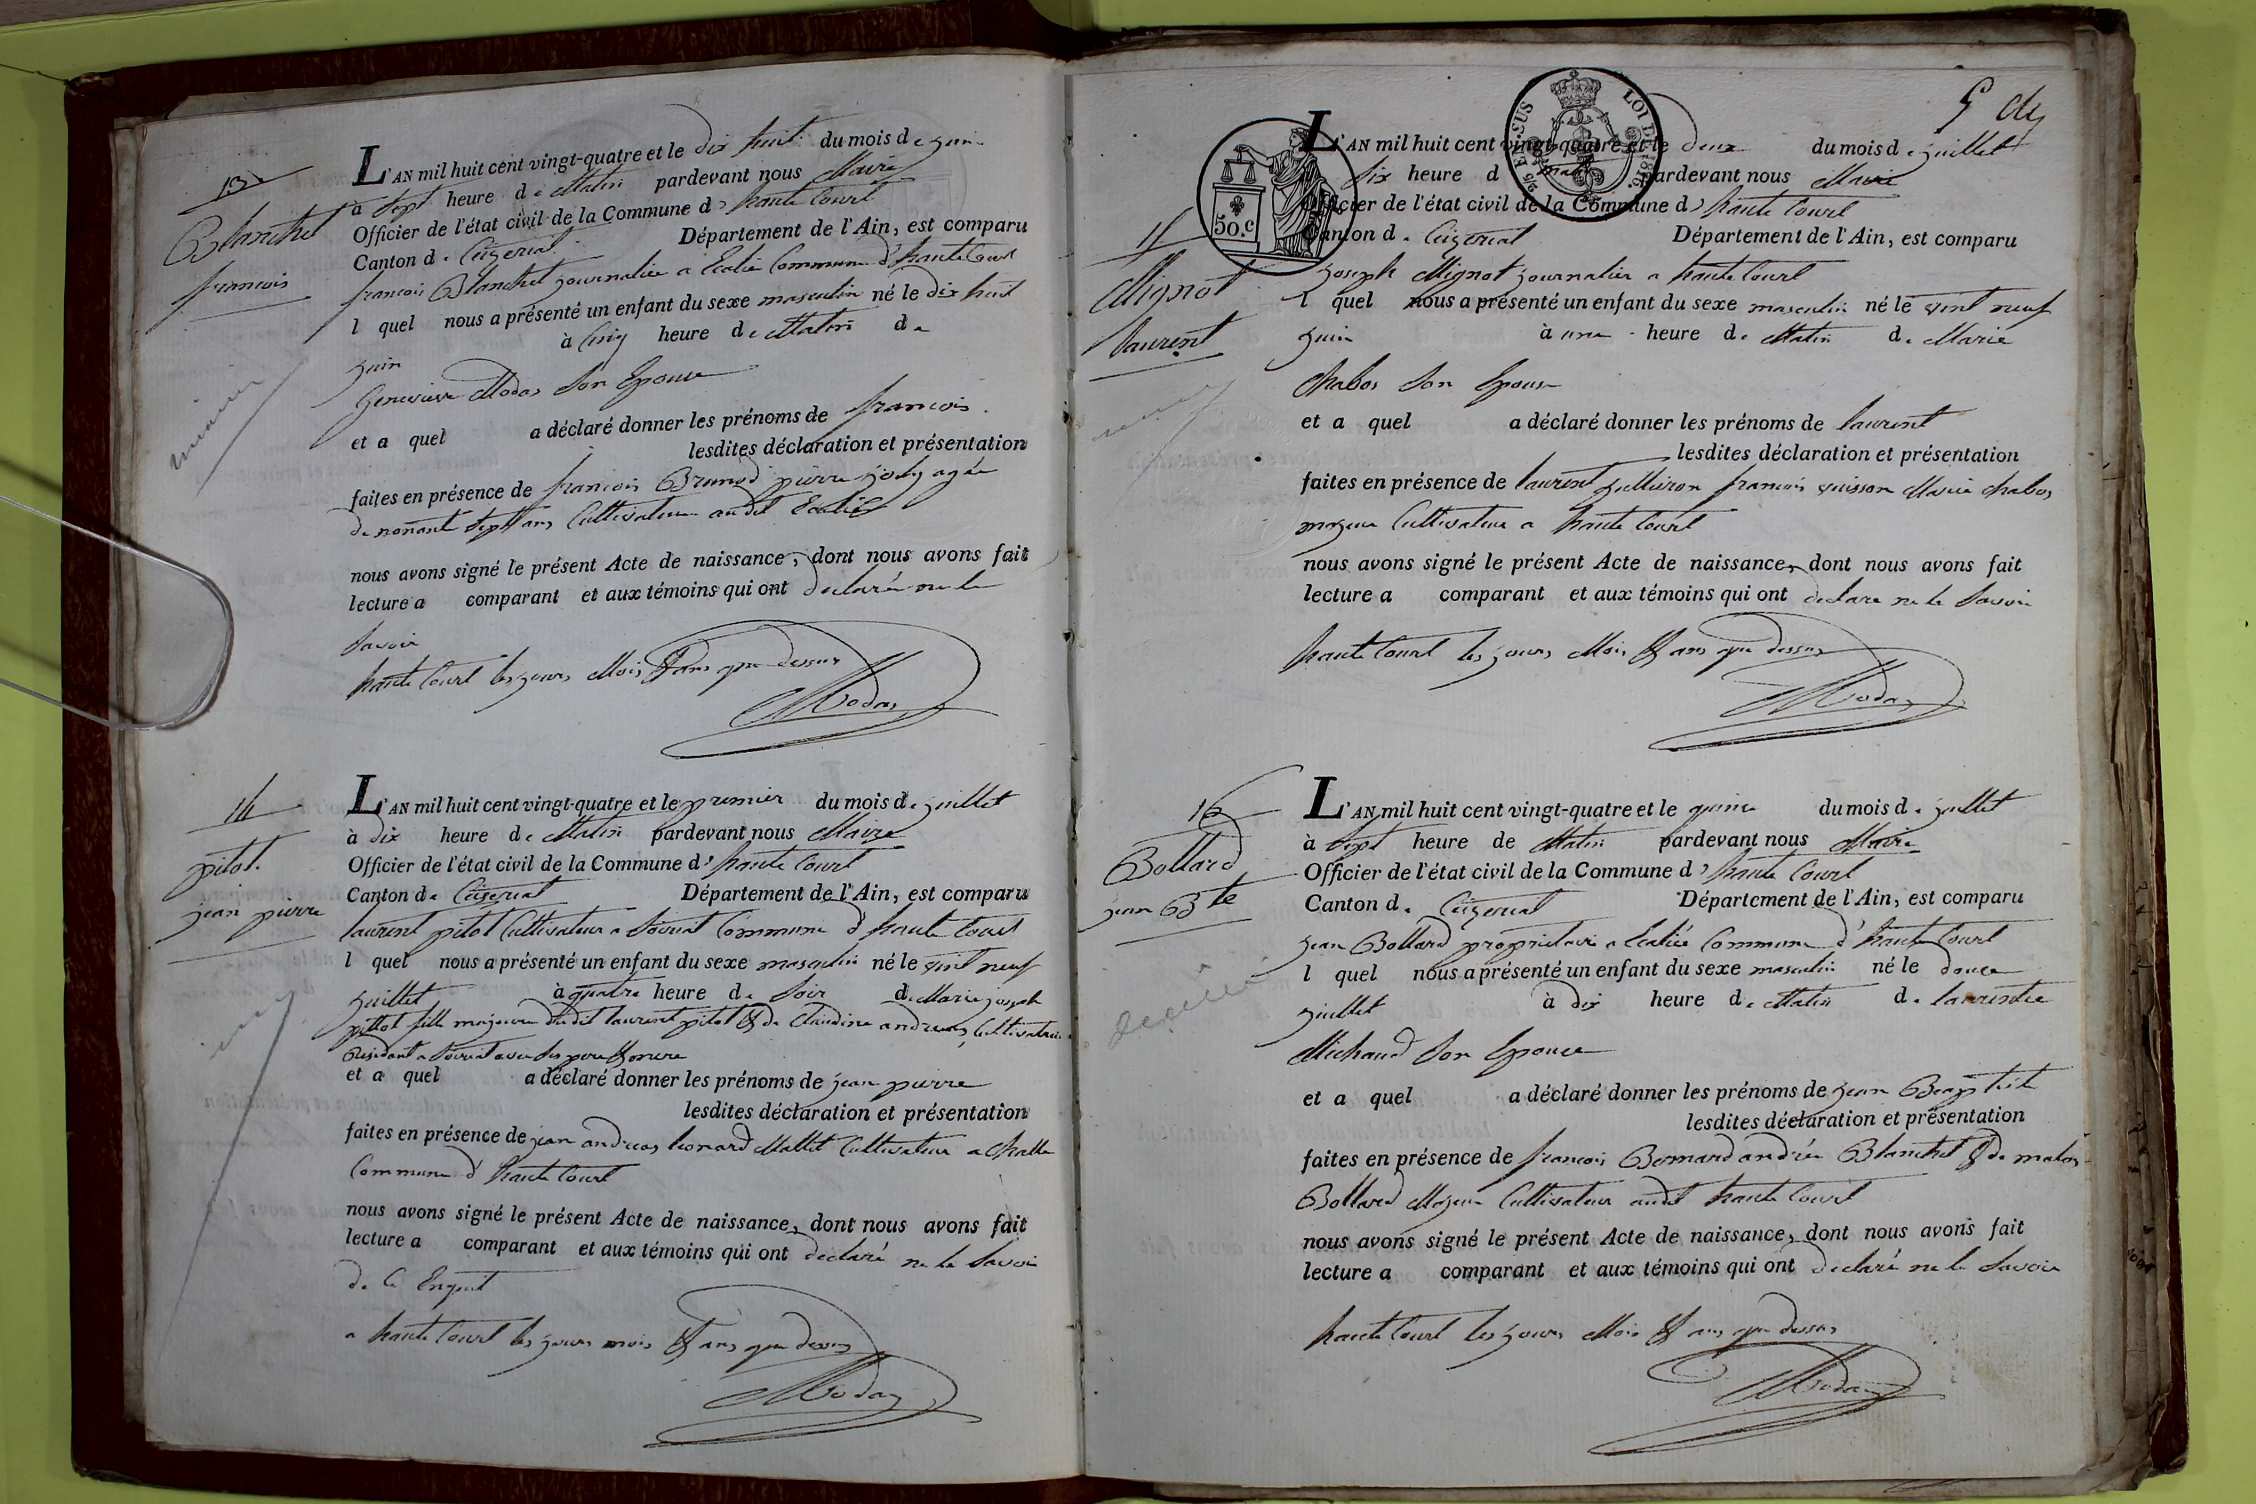 13
Blanchet
francois
L'AN mil huit cent vingt-quatre et le dix huit du mois de juin
à sept heure de Matin pardevant nous Maire
Officier de l'état civil de la Commune d' haute Court
Canton de Ceizeriat Département de l'Ain, est comparu
francois Blanchet journalier a Commune d'haute Court
l quel nous a présenté un enfant du sexe masculin né le dix huit
juin à Cinq heure de Matin de
Genevieve Modas son Epouse
et a quel a déclaré donner les prénoms de francois
lesdites déclaration et présentation
faites en présence de francois Brunod pierre joly agée
de nonante sept ans Cultivateur audit
nous avons signé le présent Acte de naissance, dont nous avons fait
lecture a comparant et aux témoins qui ont declaré ne le
savoir
haute Court les jours Mois & ans que dessus
Modas
14
pitot
jean pierre
L'AN mil huit cent vingt-quatre et le premier du mois de juillet
à dix heure de Matin pardevant nous Maire
Officier de l'état civil de la Commune d' haute Court
Canton de Ceizeriat Département de l'Ain, est comparu
laurent pitot Cultivateur a Commune d haute Court
l quel nous a présenté un enfant du sexe masculin né le vint neuf
juillet à quatre heure de soir de Marie joseph
pittot fille majeure dudit laurent pitot & de Claudine andreas Cultivatrice
Residant a avec ses pere & mere
et a quel a déclaré donner les prénoms de jean pierre
lesdites déclaration et présentation
faites en présence de jean andreas leonard Mallet Cultivateur a Challe
Commune d' haute Court
nous avons signé le présent Acte de naissance, dont nous avons fait
lecture a comparant et aux témoins qui ont declaré ne le savoir
de Ce Enquit
a haute Court les jours mois & ans que dessus
Modas
5
25 EN SUS
LOI DE 1816.
50.c
15
Mignot
laurent
L'AN mil huit cent vingt-quatre et le deux du mois de juillet
Six heure d mat pardevant nous Maire
Officier de l'état civil de la Commune d' haute Court
Canton de Ceizeriat Département de l'Ain, est comparu
joseph Mignot journalier a haute Court
l quel nous a présenté un enfant du sexe masculin né le vint neuf
juin à une heure de Matin de Marie
Chabos son Epouse
et a quel a déclaré donner les prénoms de laurent
lesdites déclaration et présentation
faites en présence de laurent francois Marie Chabos
majeur Cultivateur a haute Court
nous avons signé le présent Acte de naissance, dont nous avons fait
lecture a comparant et aux témoins qui ont declaré ne le savoir
haute Court les jours Mois & ans que dessus
Modas
16
Bollard
jean Bte
L'AN mil huit cent vingt-quatre et le quinze du mois de juillet
à sept heure de Matin pardevant nous Maire
Officier de l'état civil de la Commune d' haute Court
Canton de Ceizeriat Département de l'Ain, est comparu
jean Bollard proprietaire a Commune d' haute Court
l quel nous a présenté un enfant du sexe masculin né le douze
juillet à dix heure de Matin de laurentie
Michaud son Epouse
et a quel a déclaré donner les prénoms de jean Baptiste
lesdites déclaration et présentation
faites en présence de francois andrée Blanchet & de
Bollard Majeur Cultivateur audit haute Court
nous avons signé le présent Acte de naissance, dont nous avons fait
lecture a comparant et aux témoins qui ont declaré ne le savoir
haute Court les jours Mois & ans que dessus
Modas